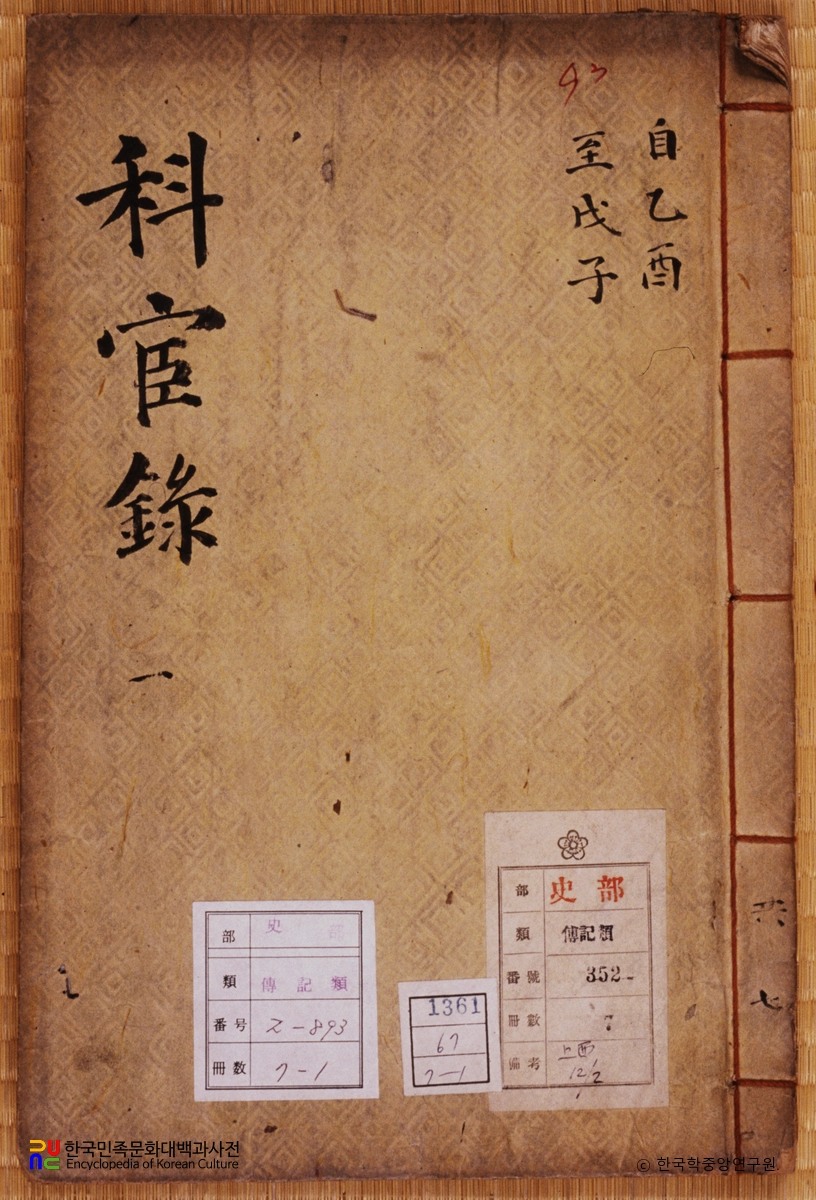 科宦錄 一
自乙酉
至戊子
93
共七
部 史部
類 傳記類
番号 乙-893
冊數 7-1
1361
67
7-1
部 史部
類 傳記類
番號 352
冊數 7
備考
12/2
한국민족문화대백과사전
Encyclopedia of Korean Culture
© 한국학중앙연구원